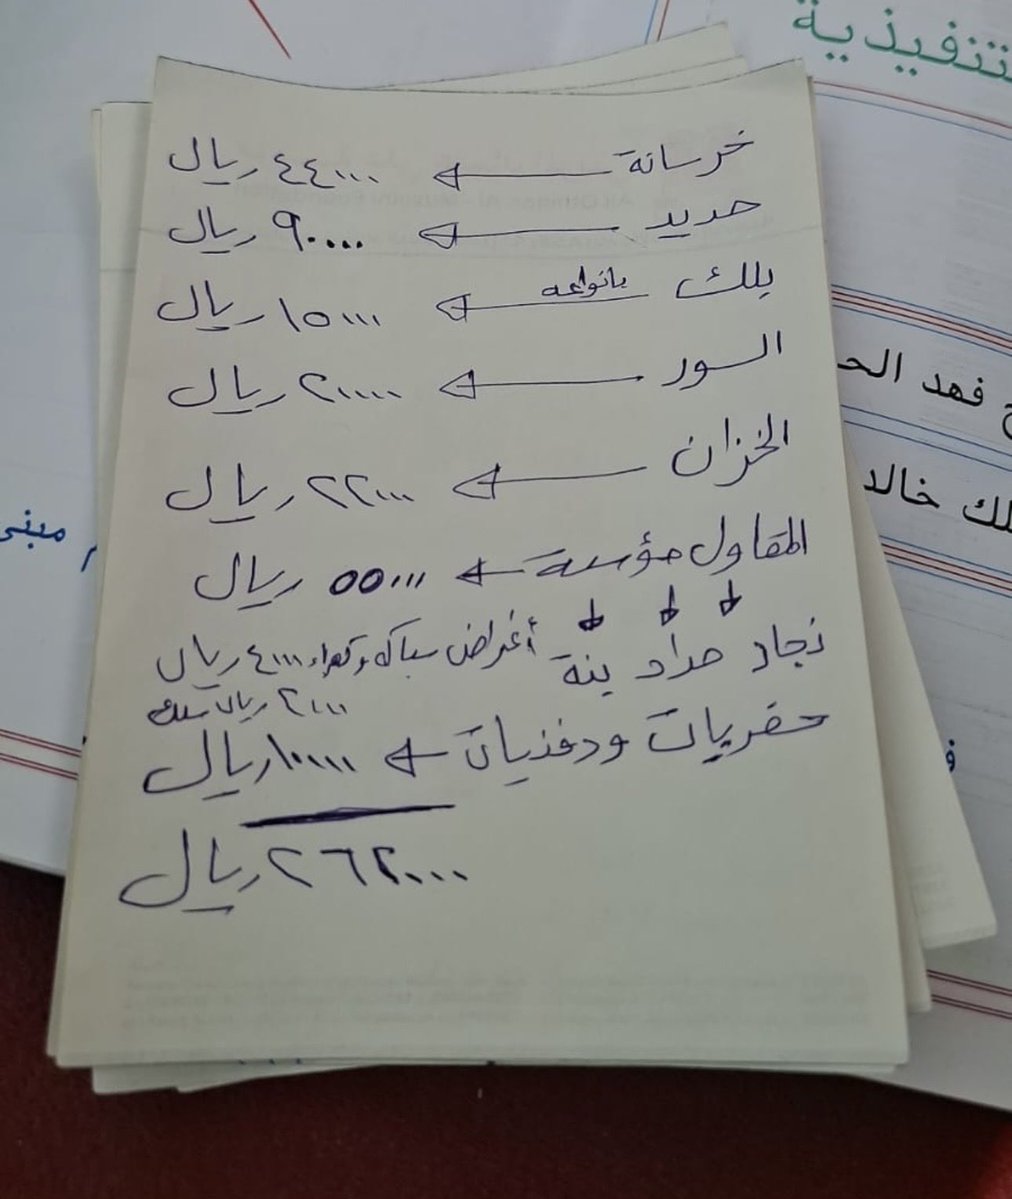 تنفيذية
خرسانة ← ٤٤٠٠٠ ريال
حديد ← ٩٠٠٠٠ ريال
بلك بانواعه ← ١٥٠٠٠ ريال
السور ← ٢٠٠٠٠ ريال
الخزان ← ٢٢٠٠٠ ريال
المقاول مؤسسة ← ٥٥٠٠٠ ريال
نجار حداد بنة أغراض سباكه وكهرباء ٤٠٠٠ ريال
٢٠٠٠ ريال سلك
حفريات ودفنيات ← ١٠٠٠٠ ريال
٢٦٢٠٠٠ ريال
فهد الح
لك خالد
مبنى